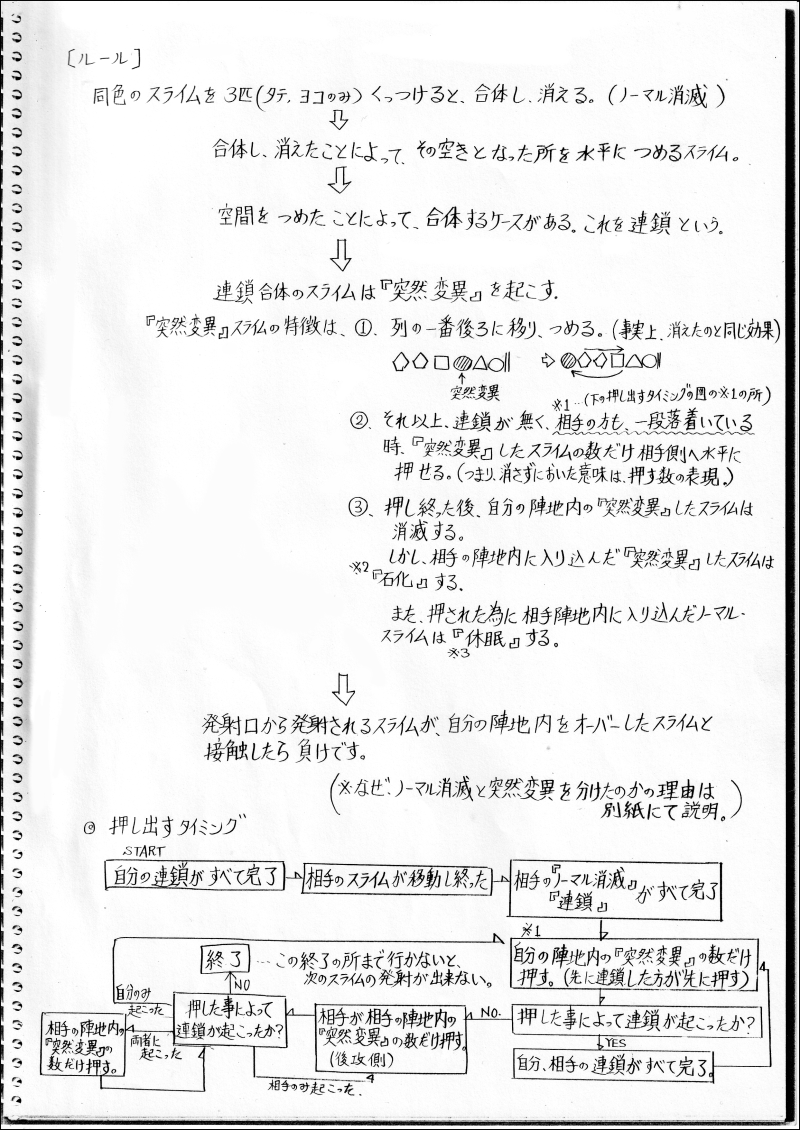 ［ルール］
同色のスライムを3匹(タテ,ヨコのみ)くっつけると、合体し、消える。(ノーマル消滅)
合体し、消えたことによって、その空きとなった所を水平につめるスライム。
空間をつめたことによって、合体するケースがある。これを連鎖という。
連鎖合体のスライムは『突然変異』を起こす.
『突然変異』スライムの特徴は、①、列の一番後ろに移り、つめる。(事実上、消えたのと同じ効果)
突然変異
※1…(下の押し出すタイミングの図の※1の所)
②、それ以上、連鎖が無く、相手の方も、一段落着いている
時、『突然変異』したスライムの数だけ相手側へ水平に
押せる。(つまり、消さずにおいた意味は、押す数の表現。)
③、押し終った後、自分の陣地内の『突然変異』したスライムは
消滅する。
しかし、相手の陣地内に入り込んだ『突然変異』したスライムは
※2『石化』する.
また、押された為に相手陣地内に入り込んだノーマル・
スライムは『休眠』する。
※3
発射口から発射されるスライムが、自分の陣地内をオーバーしたスライムと
接触したら負けです。
(※なぜ、ノーマル消滅と突然変異を分けたのかの理由は
別紙にて説明。)
◎ 押し出すタイミング
START
自分の連鎖がすべて完了
相手のスライムが移動し終った
相手の『ノーマル消滅』
『連鎖』
がすべて完了
※1
自分の陣地内の『突然変異』の数だけ
押す。(先に連鎖した方が先に押す)
押した事によって連鎖が起こったか?
YES
自分、相手の連鎖がすべて完了。
NO.
相手が相手の陣地内の
『突然変異』の数だけ押す。
(後攻側)
押した事によって
連鎖が起こったか?
NO
終了
…この終了の所まで行かないと、
次のスライムの発射が出来ない。
自分のみ
起こった
両者に
起こった
相手の陣地内の
『突然変異』の
数だけ押す。
相手のみ起こった.